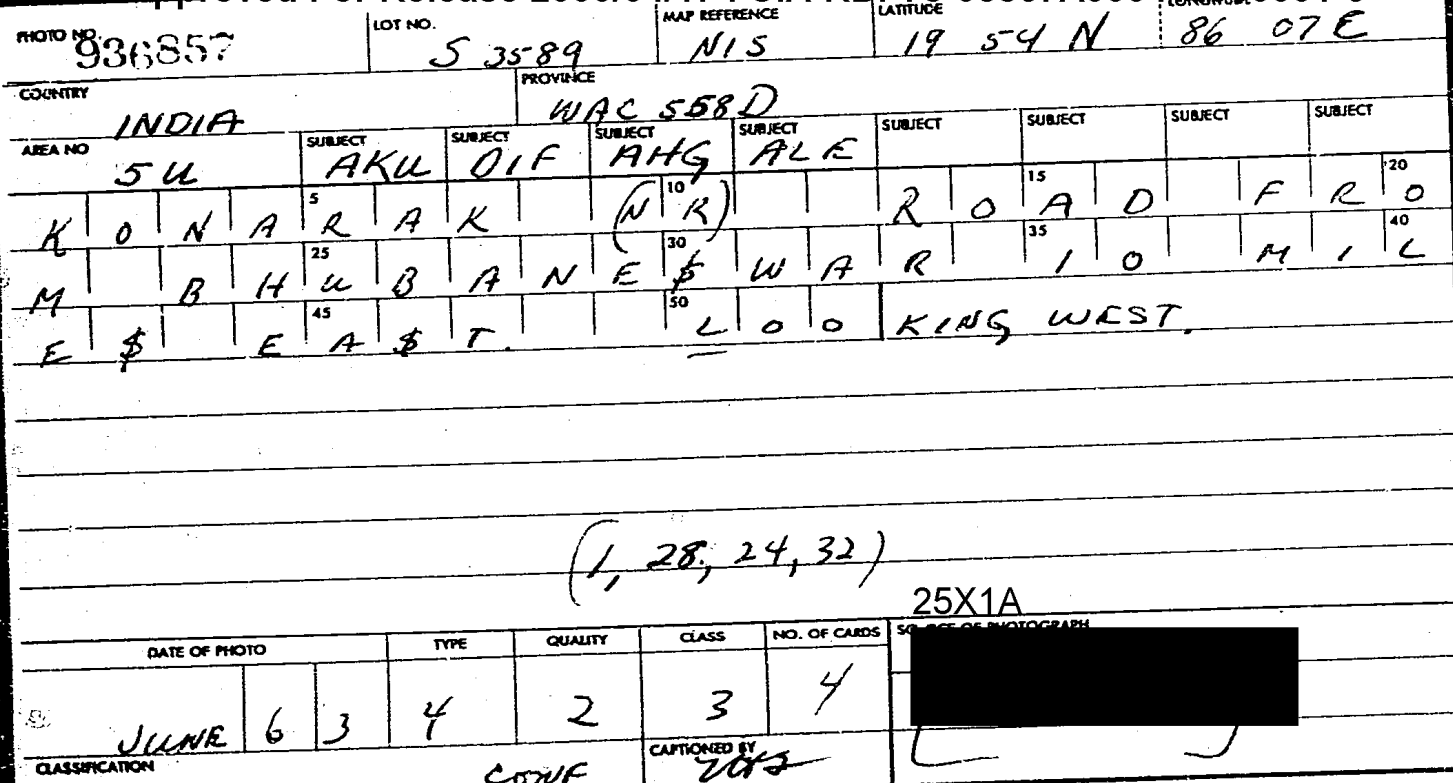 PHOTO NO. 936857 LOT NO. S 3589 MAP REFERENCE NIS LATITUDE 19 54 N 86 07 E
COUNTRY INDIA PROVINCE WAC 558D
AREA NO 5U SUBJECT AKU SUBJECT OIF SUBJECT AHG SUBJECT ALE SUBJECT SUBJECT SUBJECT SUBJECT
5 10 15 20
KONARAK (NR) ROAD FRO
25 30 35 40
M BHUBANE$WAR 10 MIL
45 50
E$ EA$T. LOOKING WEST.
(1, 28, 24, 32)
25X1A
DATE OF PHOTO TYPE QUALITY CLASS NO. OF CARDS OF PHOTOGRAPH
JUNE 63 4 2 3 4
CLASSIFICATION CONF CAPTIONED BY